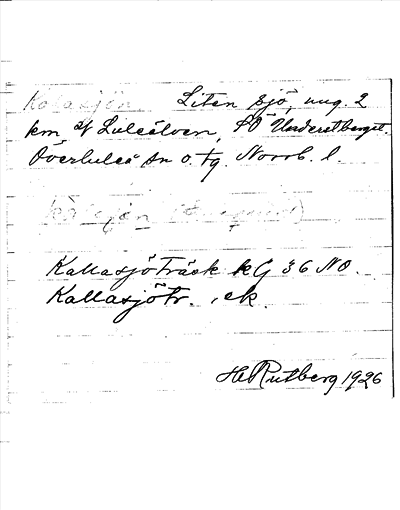 Kallasjön Liten sjö, ung. 2
km af Luleälven, SO Underetberget.
Överluleå sn o. tg. Norrb. l.
Kallasjöträsk kG 36 NO.
Kallasjötr. , ek.
H Rutberg 1926